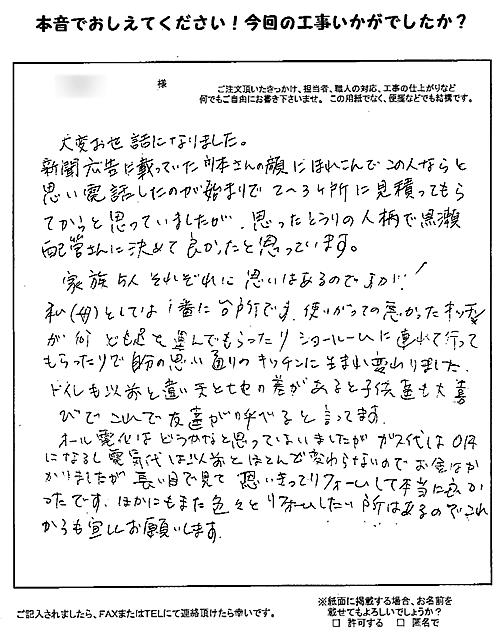 本音でおしえてください！今回の工事いかがでしたか？
様
ご注文頂いたきっかけ、担当者、職人の対応、工事の仕上がりなど
何でもご自由にお書き下さいませ。この用紙でなく、便箋などでも結構です。
大変お世話になりました。
新聞広告に載っていた さんの顔にほれこんでこの人ならと
思い電話したのが始まりで 2〜3ヶ所に見積ってもら
てからと思っていましたが、思ったとうりの人柄で黒瀬
配管さんに決めて良かったと思っています。
家族5人それぞれに思いはあるのですが！
私(母)としては1番に台所です。使いがっての悪かったキッチン
が何ども足を運んでもらったりショールームに連れて行って
もらったりで自分の思い通りのキッチンに生まれ変わりました。
トイレも以前と違い天と地の差があると子供達も大喜
びでこれで友達が呼べると言ってます。
オール電化はどうかなと思っていましたがガス代は0円
になるし電気代は以前とほとんど変わらないのでお金はか
かりましたが長い目で見て思いきってリフォームして本当に良か
ったです。ほかにもまだ色々とリフォームしたい所はあるのでこれ
からも宜しくお願いします。
ご記入されましたら、FAXまたはTELにて連絡頂けたら幸いです。
※紙面に掲載する場合、お名前を
載せてもよろしいでしょうか？
□ 許可する □ 匿名で